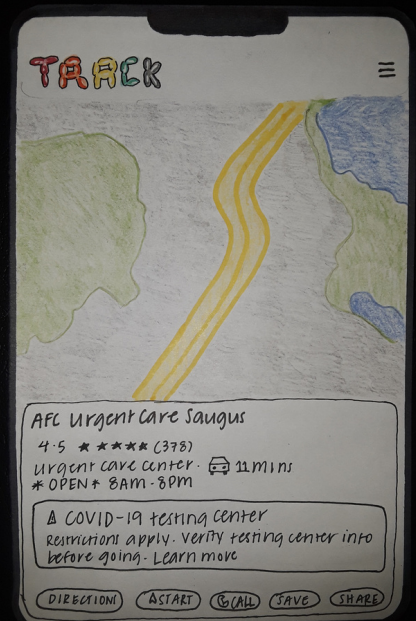 TRACK
AFC Urgent Care Saugus
4.5 ★★★★★ (378)
Urgent care center. 11 mins
* OPEN * 8AM-8PM
COVID-19 testing center
Restrictions apply. Verify testing center info
before going. Learn more
DIRECTIONS START CALL SAVE SHARE